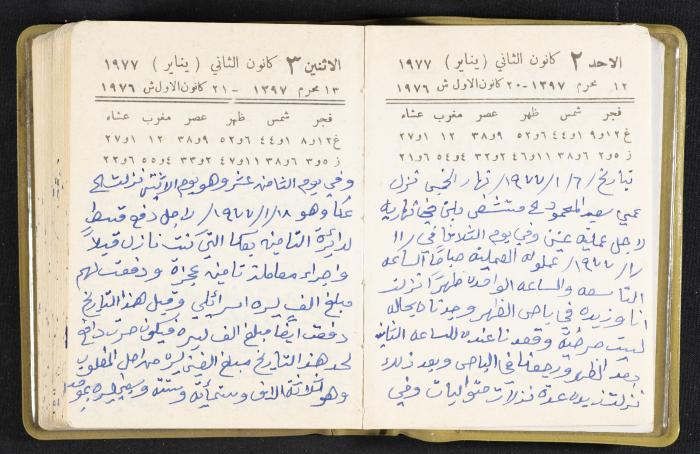 الاحد ٢ كانون الثاني ( يناير ) ١٩٧٧
١٢ محرم ١٣٩٧ - ٢٠ كانون الاول ش ١٩٧٦
فجر شمس ظهر عصر مغرب عشاء
غ ١٢و٩ ١و٤٤ ٦و٥٢ ٩و٣٨ ١٢ ١و٢٧
ز ٥و٢ ٦و٣٨ ١١و٤٦ ٢و٣٢ ٤و٥٤ ٦و٢١
بتاريخ /٦/١/١٩٧٧ نهار الخميس نزل
عمي سعيد المحمود مستشفى نهاريه
لاجل عملية وفي يوم الثلاثا في /١١
/١/١٩٧٧ عملوله العمليه صباحا الساعه
التاسعه والساعه الواحده ظهرا نزلت
انا وزيده في باص الظهر وجدناه بحاله
ليست مرضية وقعدنا عنده للساعه الثانيه
بعد الظهر ورجعنا في الباص وبعد ذلك
نزلت زيده عدة نزلات متواليات وفي
الاثنين ٣ كانون الثاني ( يناير ) ١٩٧٧
١٣ محرم ١٣٩٧ - ٢١ كانون الاول ش ١٩٧٦
فجر شمس ظهر عصر مغرب عشاء
غ ١٢و٨ ١و٤٤ ٦و٥٢ ٩و٣٨ ١٢ ١و٢٧
ز ٥و٣ ٦و٣٨ ١١و٤٧ ٢و٣٣ ٤و٥٥ ٦و٢٢
وفي يوم الثامن عشر وهو يوم الاثنين نزلت الى
عكا وهو ١٨/١/١٩٧٧/ لاجل دفع قسط
لدائرة التامين بعكا التي كنت نازل قبلاً
واجراء معاملة تامين ودفعت لهم
مبلغ الف ليره اسرائيلي وقبل هذا التاريخ
دفعت ايضا مبلغ الف ليره فيكون صرت دافع
لحد هذا التاريخ مبلغ الفين ليره من اصل المطلوب
وهو ثلاثة الاف وستمائة وستة